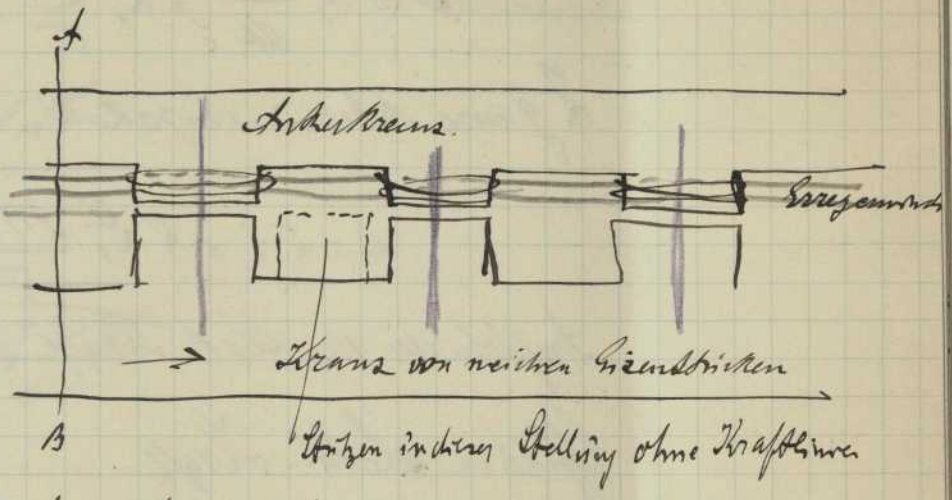 A
Ankerkranz.
Kranz von weichen Eisenstücken
B
Stutzen in dieser Stellung ohne Kraftlinien